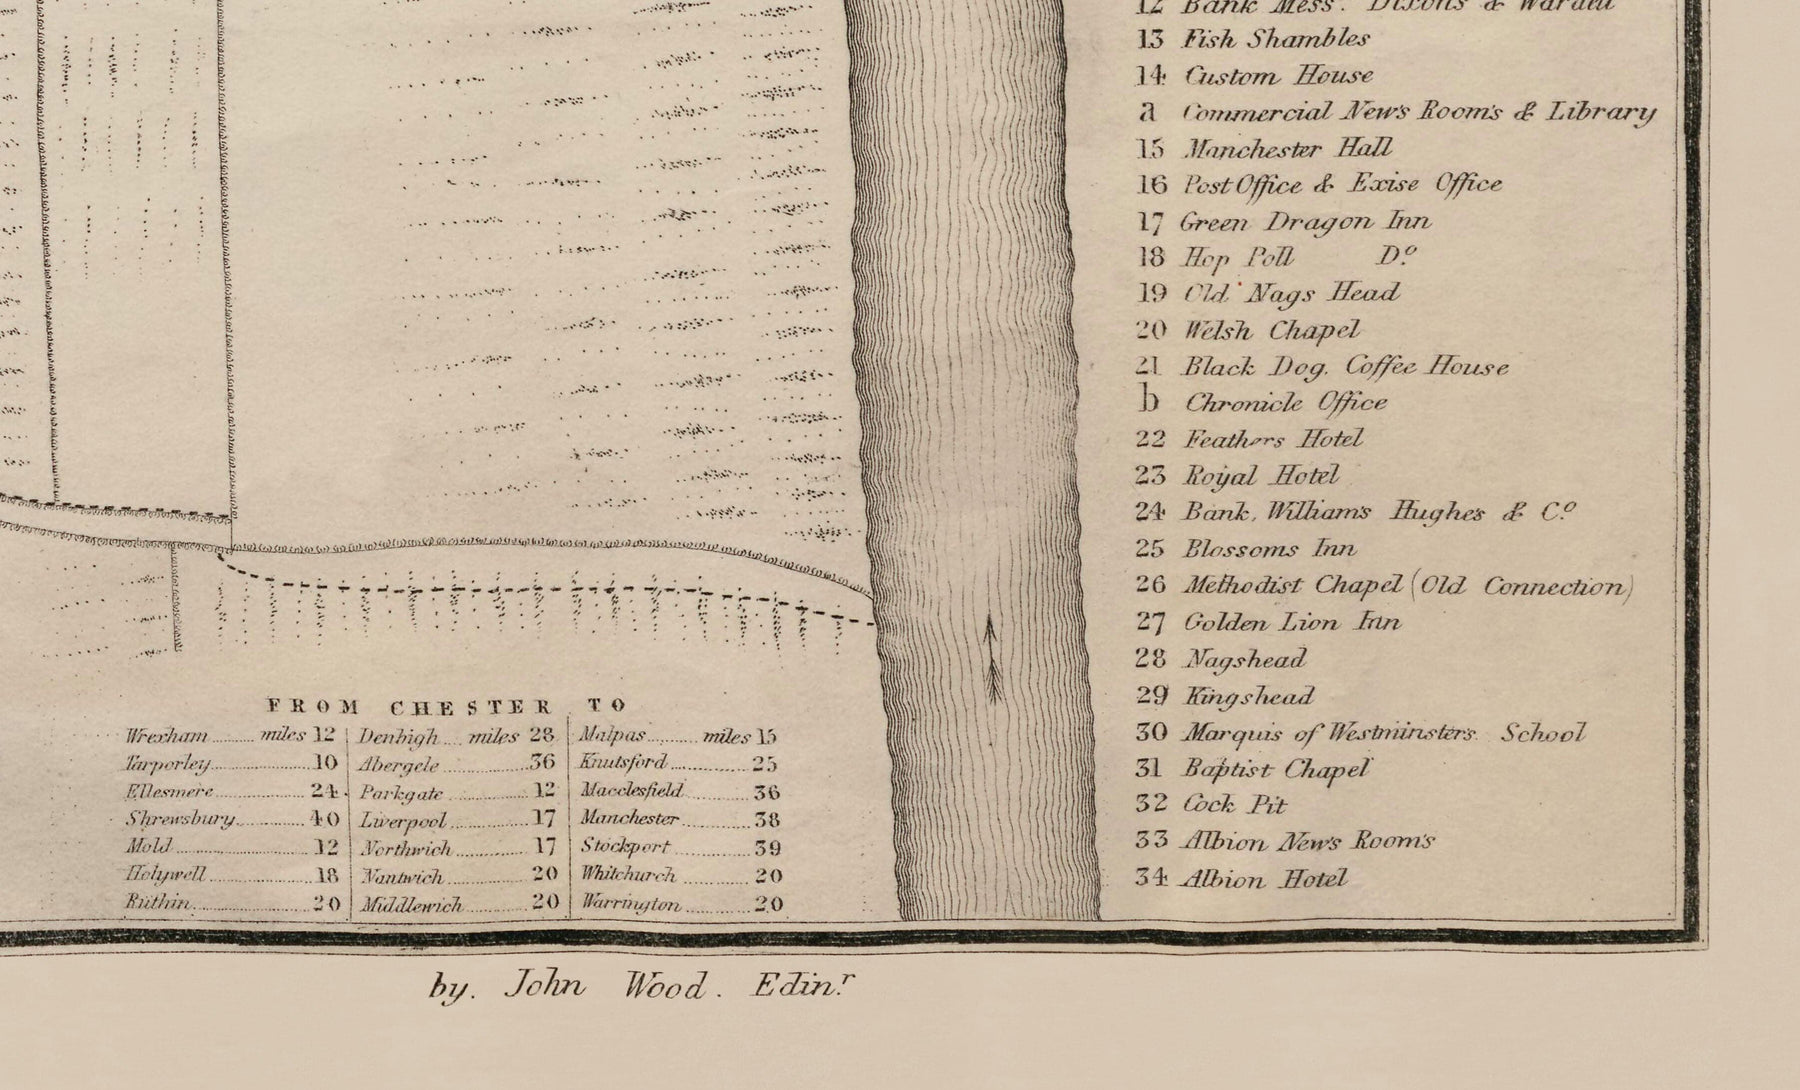 12 Bank Mess.rs Dixons & Wardell
13 Fish Shambles
14 Custom House
a Commercial New's Room's & Library
15 Manchester Hall
16 Post Office & Exise Office
17 Green Dragon Inn
18 Hop Poll D.o
19 Old Nags Head
20 Welsh Chapel
21 Black Dog. Coffee House
b Chronicle Office
22 Feathers Hotel
23 Royal Hotel
24 Bank, William's Hughe's & C.o
25 Blossoms Inn
26 Methodist Chapel (Old Connection)
27 Golden Lion Inn
28 Nagshead
29 Kingshead
30 Marquis of Westminster's School
31 Baptist Chapel
32 Cock Pit
33 Albion New's Room's
34 Albion Hotel
FROM CHESTER TO
Wrexham miles 12 Denbigh miles 28 Malpas miles 15
Tarporley 10 Abergele 36 Knutsford 25
Ellesmere 24 Parkgate 12 Macclesfield 36
Shrewsbury 40 Liverpool 17 Manchester 38
Mold 12 Northwich 17 Stockport 39
Holywell 18 Nantwich 20 Whitchurch 20
Ruthin 20 Middlewich 20 Warrington 20
by. John Wood. Edin.r